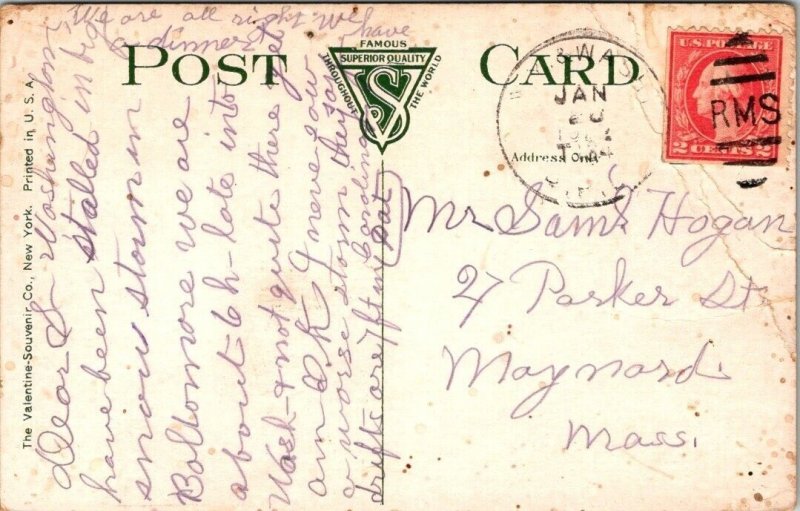 We are all right We have
a dinner
POST CARD
FAMOUS
SUPERIOR QUALITY
THROUGHOUT THE WORLD
VS
Address Only
JAN
20
RMS
U.S. POSTAGE
2 CENTS 2
Mr Saml Hogan
27 Parker St
Maynard
Mass.
The Valentine-Souvenir Co., New York. Printed in U. S. A.
Dear S- Washington
have been stalled in big
snow storm in
Baltomore we are
about 6 h- late into
Wash & not quite there yet
am I never saw
a worse storm the
drifts are 7 ft in
Sat